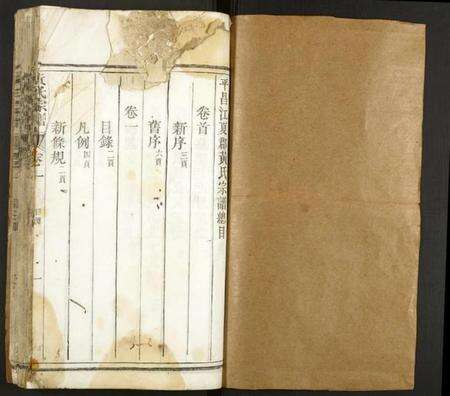 平昌江夏郡黃氏宗譜總目
卷首
新序 三頁
舊序 六頁
卷一
目錄 二頁
凡例 四頁
新條規 二頁